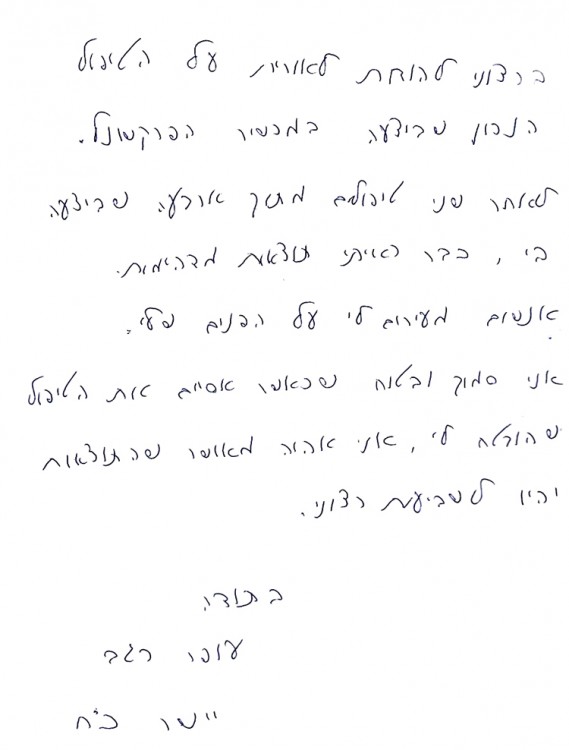 ברצוני להודות לאורית על הטיפול
הנכון שביצעה במכשיר הפרקשונל.
לאחר שני טיפולים מתוך ארבעה שביצעה
בי, כבר ראיתי תוצאות מדהימות.
אנשים מעירים לי על הפנים שלי.
אני סמוך ובטוח שכאשר אסיים את הטיפול
שהורטח לי, אני אהיה מאושר שהתוצאות
יהיו לשביעות רצוני.
בתודה
עופר רגב
יישר כ"ח